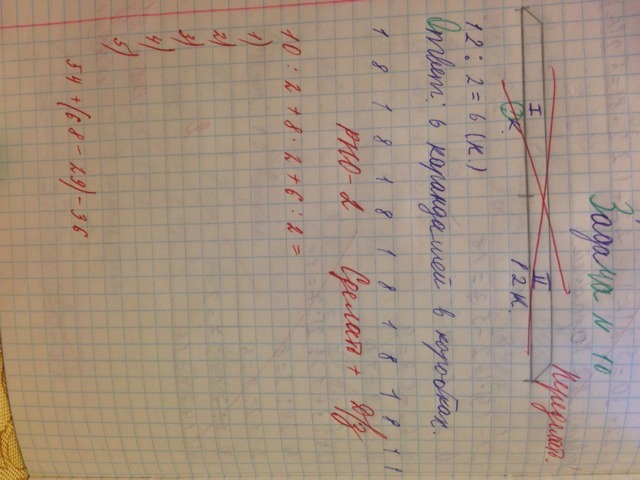 Задача № 10
Переделат.
I II
к. 12 к.
12 : 2 = 6 (к.)
Ответ: 6 карандашей в коробках.
1 8 1 8 1 8 1 8 1 8 1 8 1 1
РНО - 2 Сделать + д/з
10 : 2 + 8 · 2 + 6 : 2 =
1)
2)
3)
4)
5)
54 + (68 - 29) - 36